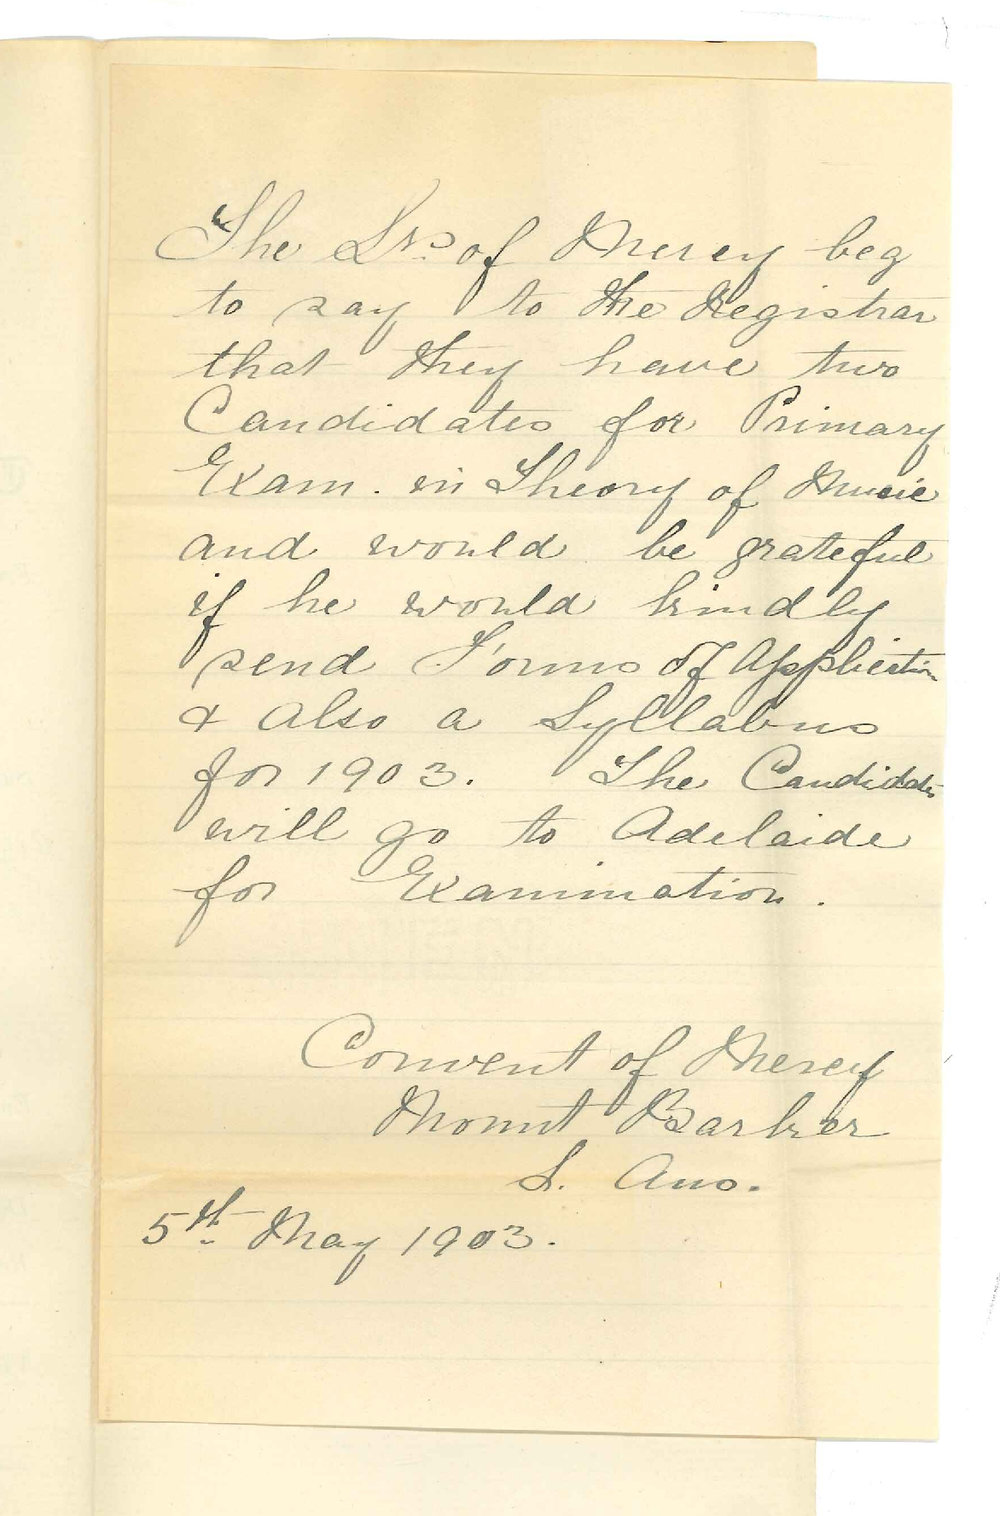 The Srs. of Mercy beg
to say to the Registrar
that they have two
Candidates for Primary
Exam. in Theory of Music
and would be grateful
if he would kindly
send Forms of Application
& also a Syllabus
for 1903. The Candidates
will go to Adelaide
for Examination.
Convent of Mercy
Mount Barker
S. Aus.
5th May 1903.